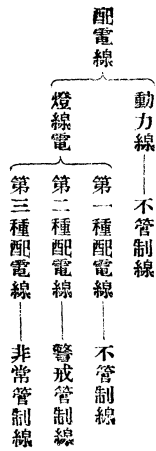 配電線
動力線——不管制線
燈線電
第一種配電線——不管制線
第二種配電線——警戒管制線
第三種配電線——非常管制線